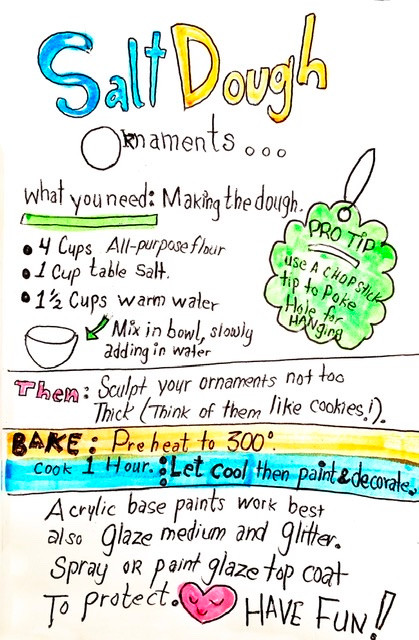 Salt Dough
Ornaments...
what you need: Making the dough.
• 4 Cups All-purpose flour
• 1 Cup table Salt.
• 1½ Cups warm water
Mix in bowl, slowly
adding in water
PRO TIP
use A CHOPSTICK
tip to Poke
Hole for
HANging
Then: Sculpt your ornaments not too
Thick (Think of them like cookies!).
BAKE: Preheat to 300°.
cook 1 Hour.: Let cool then paint & decorate.
Acrylic base paints work best
also Glaze medium and Glitter.
Spray OR paint glaze top coat
To protect. HAVE FUN!